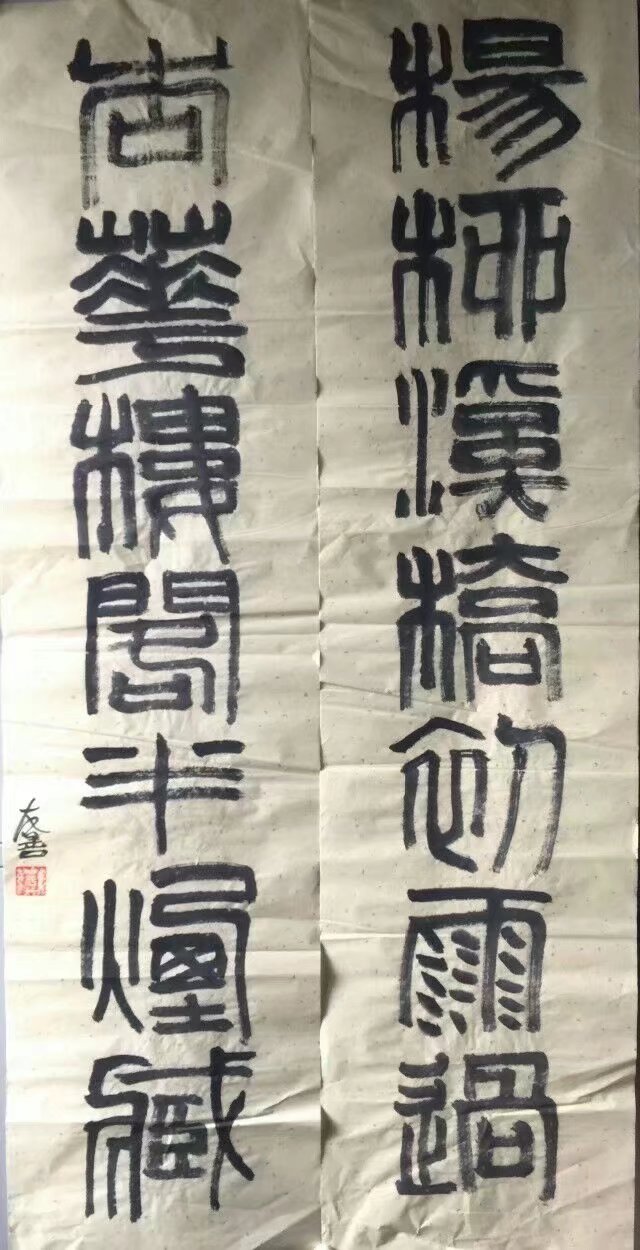 楊柳溪橋初雨過
杏華樓閣半煙藏